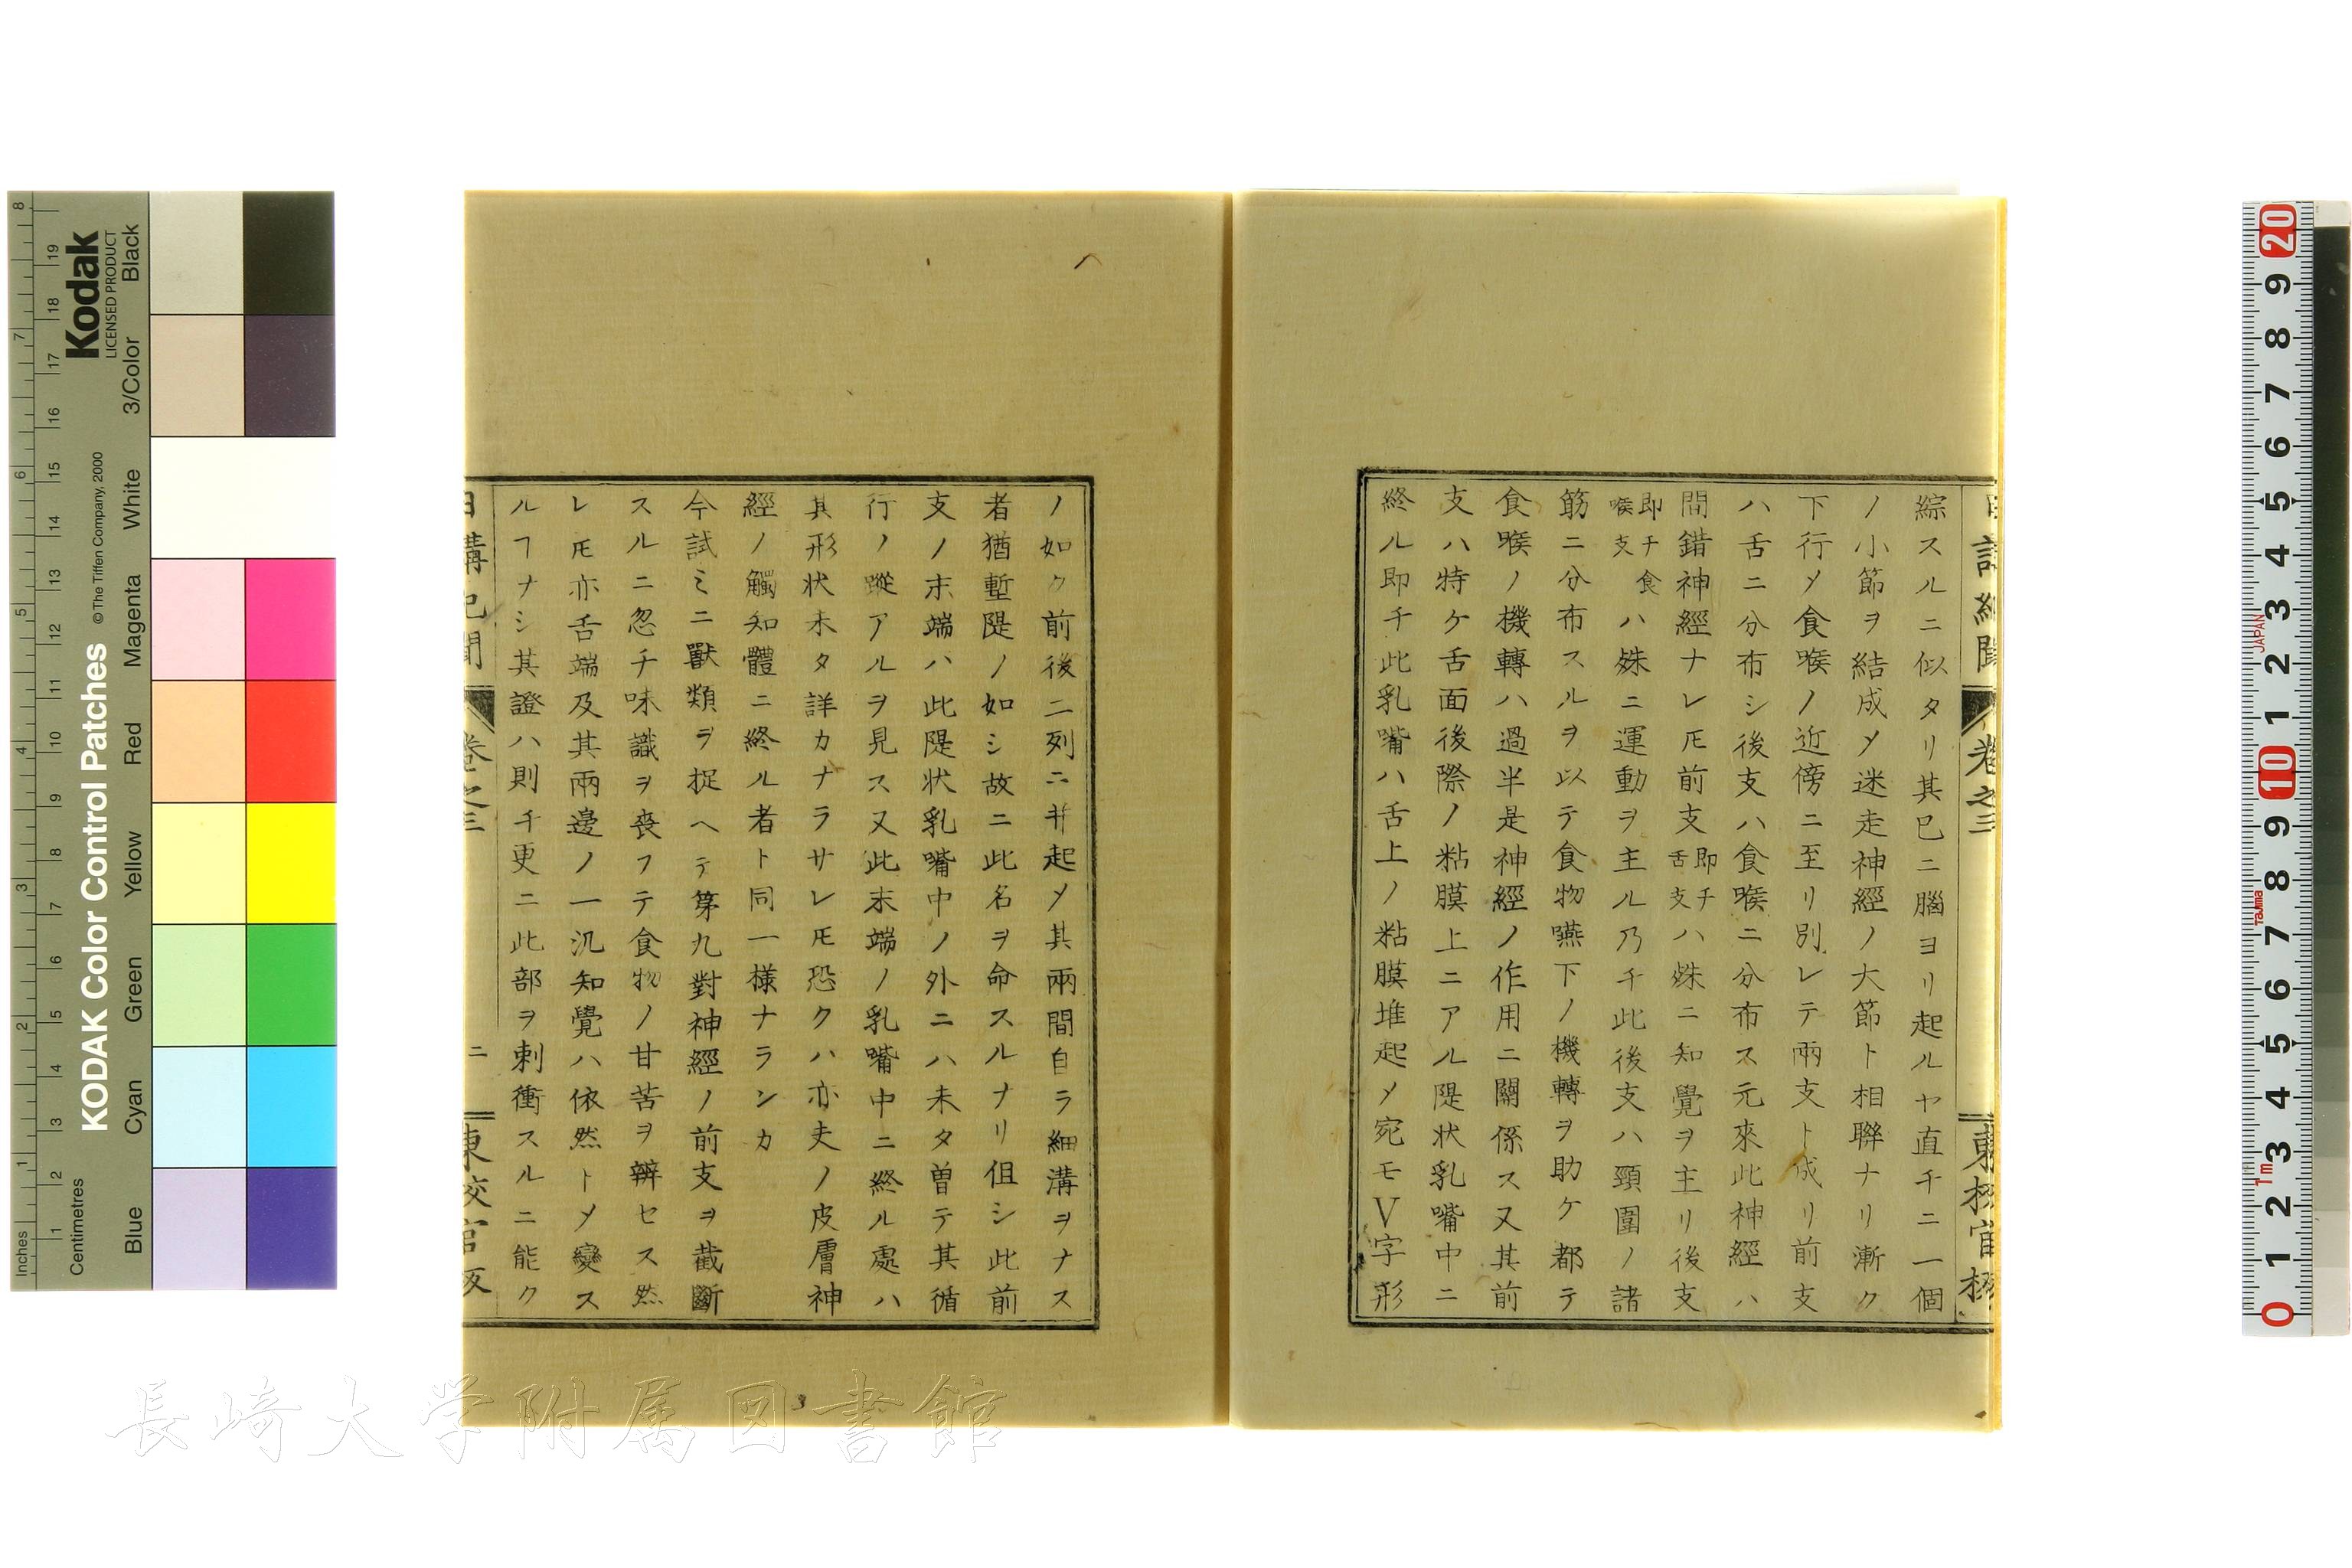 綜スルニ似タリ其巳ニ腦ヨリ起ルヤ直チニ一個
ノ小節ヲ結成〆迷走神經ノ大節ト相聯ナリ漸ク
下行〆食喉ノ近傍ニ至リ別レテ兩支ト成リ前支
ハ舌ニ分布シ後支ハ食喉ニ分布ス元來此神經ハ
間錯神經ナレ𪜈前支即チ舌支ハ殊ニ知覺ヲ主リ後支
即チ食喉支ハ殊ニ運動ヲ主ル乃チ此後支ハ頸圍ノ諸
筋ニ分布スルヲ以テ食物嚥下ノ機轉ヲ助ケ都テ
食喉ノ機轉ハ過半是神經ノ作用ニ關係ス又其前
支ハ特ケ舌面後際ノ粘膜上ニアル隄状乳嘴中ニ
終ル即チ此乳嘴ハ舌上ノ粘膜堆起〆宛モV字形
ノ如ク前後二列ニ幷起〆其兩間自ラ細溝ヲナス
者猶塹隄ノ如シ故ニ此名ヲ命スルナリ伹シ此前
支ノ末端ハ此隄状乳嘴中ノ外ニハ未タ曽テ其循
行ノ蹤アルヲ見ス又此末端ノ乳嘴中ニ終ル處ハ
其形状未タ詳カナラサレ𪜈恐クハ亦夫ノ皮膚神
經ノ觸知體ニ終ル者ト同一様ナランカ
今試ミニ獸類ヲ捉ヘテ第九對神經ノ前支ヲ截斷
スルニ忽チ味識ヲ喪フテ食物ノ甘苦ヲ辨セス然
レ𪜈亦舌端及其兩邊ノ一汎知覺ハ依然ト〆變ス
ルヿナシ其證ハ則チ更ニ此部ヲ刺衝スルニ能ク
日講記聞 卷之三 二 東校官版
長崎大学附属図書館
KODAK Color Control Patches
© The Tiffen Company, 2000
Kodak
LICENSED PRODUCT
Inches
Centimetres
Blue Cyan Green Yellow Red Magenta White 3/Color Black
JAPAN
Tajima
1m